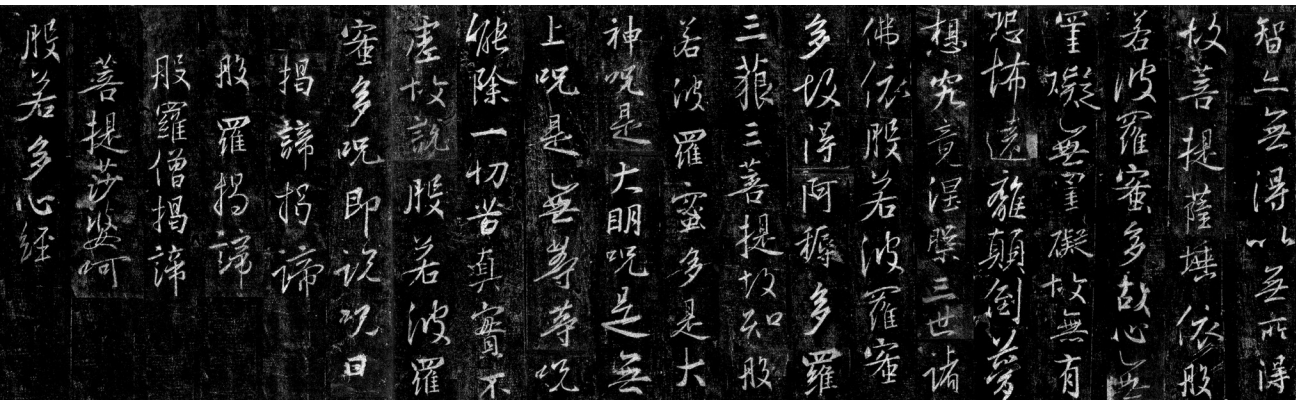 智亡無得以無所得
故菩提薩埵依般
若波羅蜜多故心無
罣礙無罣礙故無有
恐怖遠離顛倒夢
想究竟涅槃三世諸
佛依般若波羅蜜
多故得阿耨多羅
三藐三菩提故知般
若波羅蜜多是大
神呪是大明呪是無
上呪是無等等呪
能除一切苦真實不
虛故說般若波羅
蜜多呪即說呪曰
揭諦揭諦
般羅揭諦
般羅僧揭諦
菩提莎婆呵
般若多心經